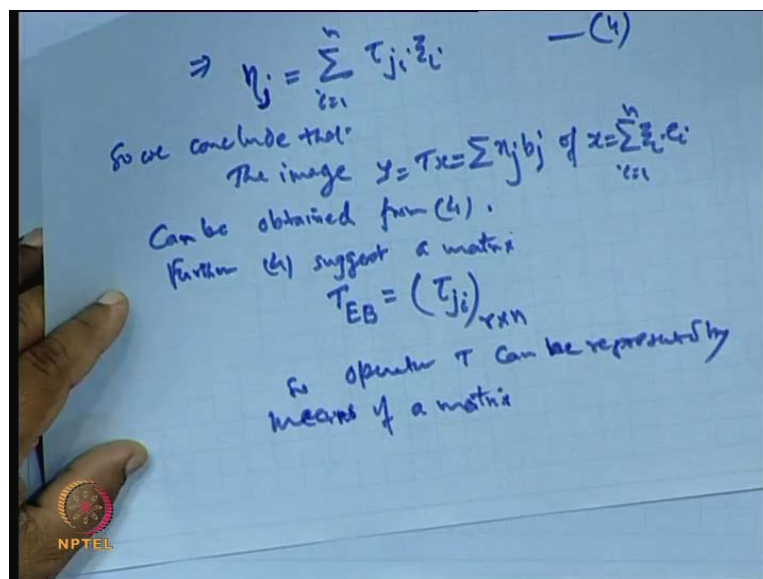 ⇒ ηj = Σ_{i=1}^{n} τji ξi —(4)
So we conclude that:
The image y = Tx = Σ ηj bj of x = Σ_{i=1}^{n} ξi ei
Can be obtained from (4).
Further (4) suggest a matrix
T_EB = (τji)_{r×n}
So operator T can be represented by
means of a matrix
NPTEL